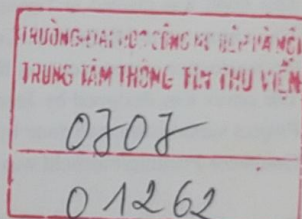 TRƯỜNG ĐẠI HỌC CÔNG NGHIỆP HÀ NỘI
TRUNG TÂM THÔNG TIN THƯ VIỆN
0707
01262